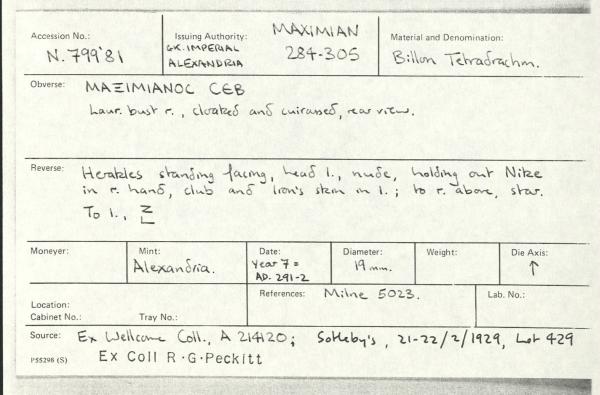 Accession No.:
N. 799'81
Issuing Authority:
GK. IMPERIAL
ALEXANDRIA
MAXIMIAN
284-305
Material and Denomination:
Billon Tetradrachm.
Obverse: MAΞIMIANOC CEB
Laur. bust r., cloaked and cuirassed, rear view.
Reverse: Herakles standing facing, head l., nude, holding out Nike
in r. hand, club and lion's skin in l.; to r. above, star.
To l., Z
L
Moneyer:
Mint:
Alexandria.
Date:
Year 7 =
AD. 291-2
Diameter:
19 mm.
Weight:
Die Axis:
↑
Location:
Cabinet No.: Tray No.:
References: Milne 5023.
Lab. No.:
Source: Ex Wellcome Coll., A 214120; Sotheby's, 21-22/2/1929, Lot 429
P55298 (S) Ex Coll R.G.Peckitt